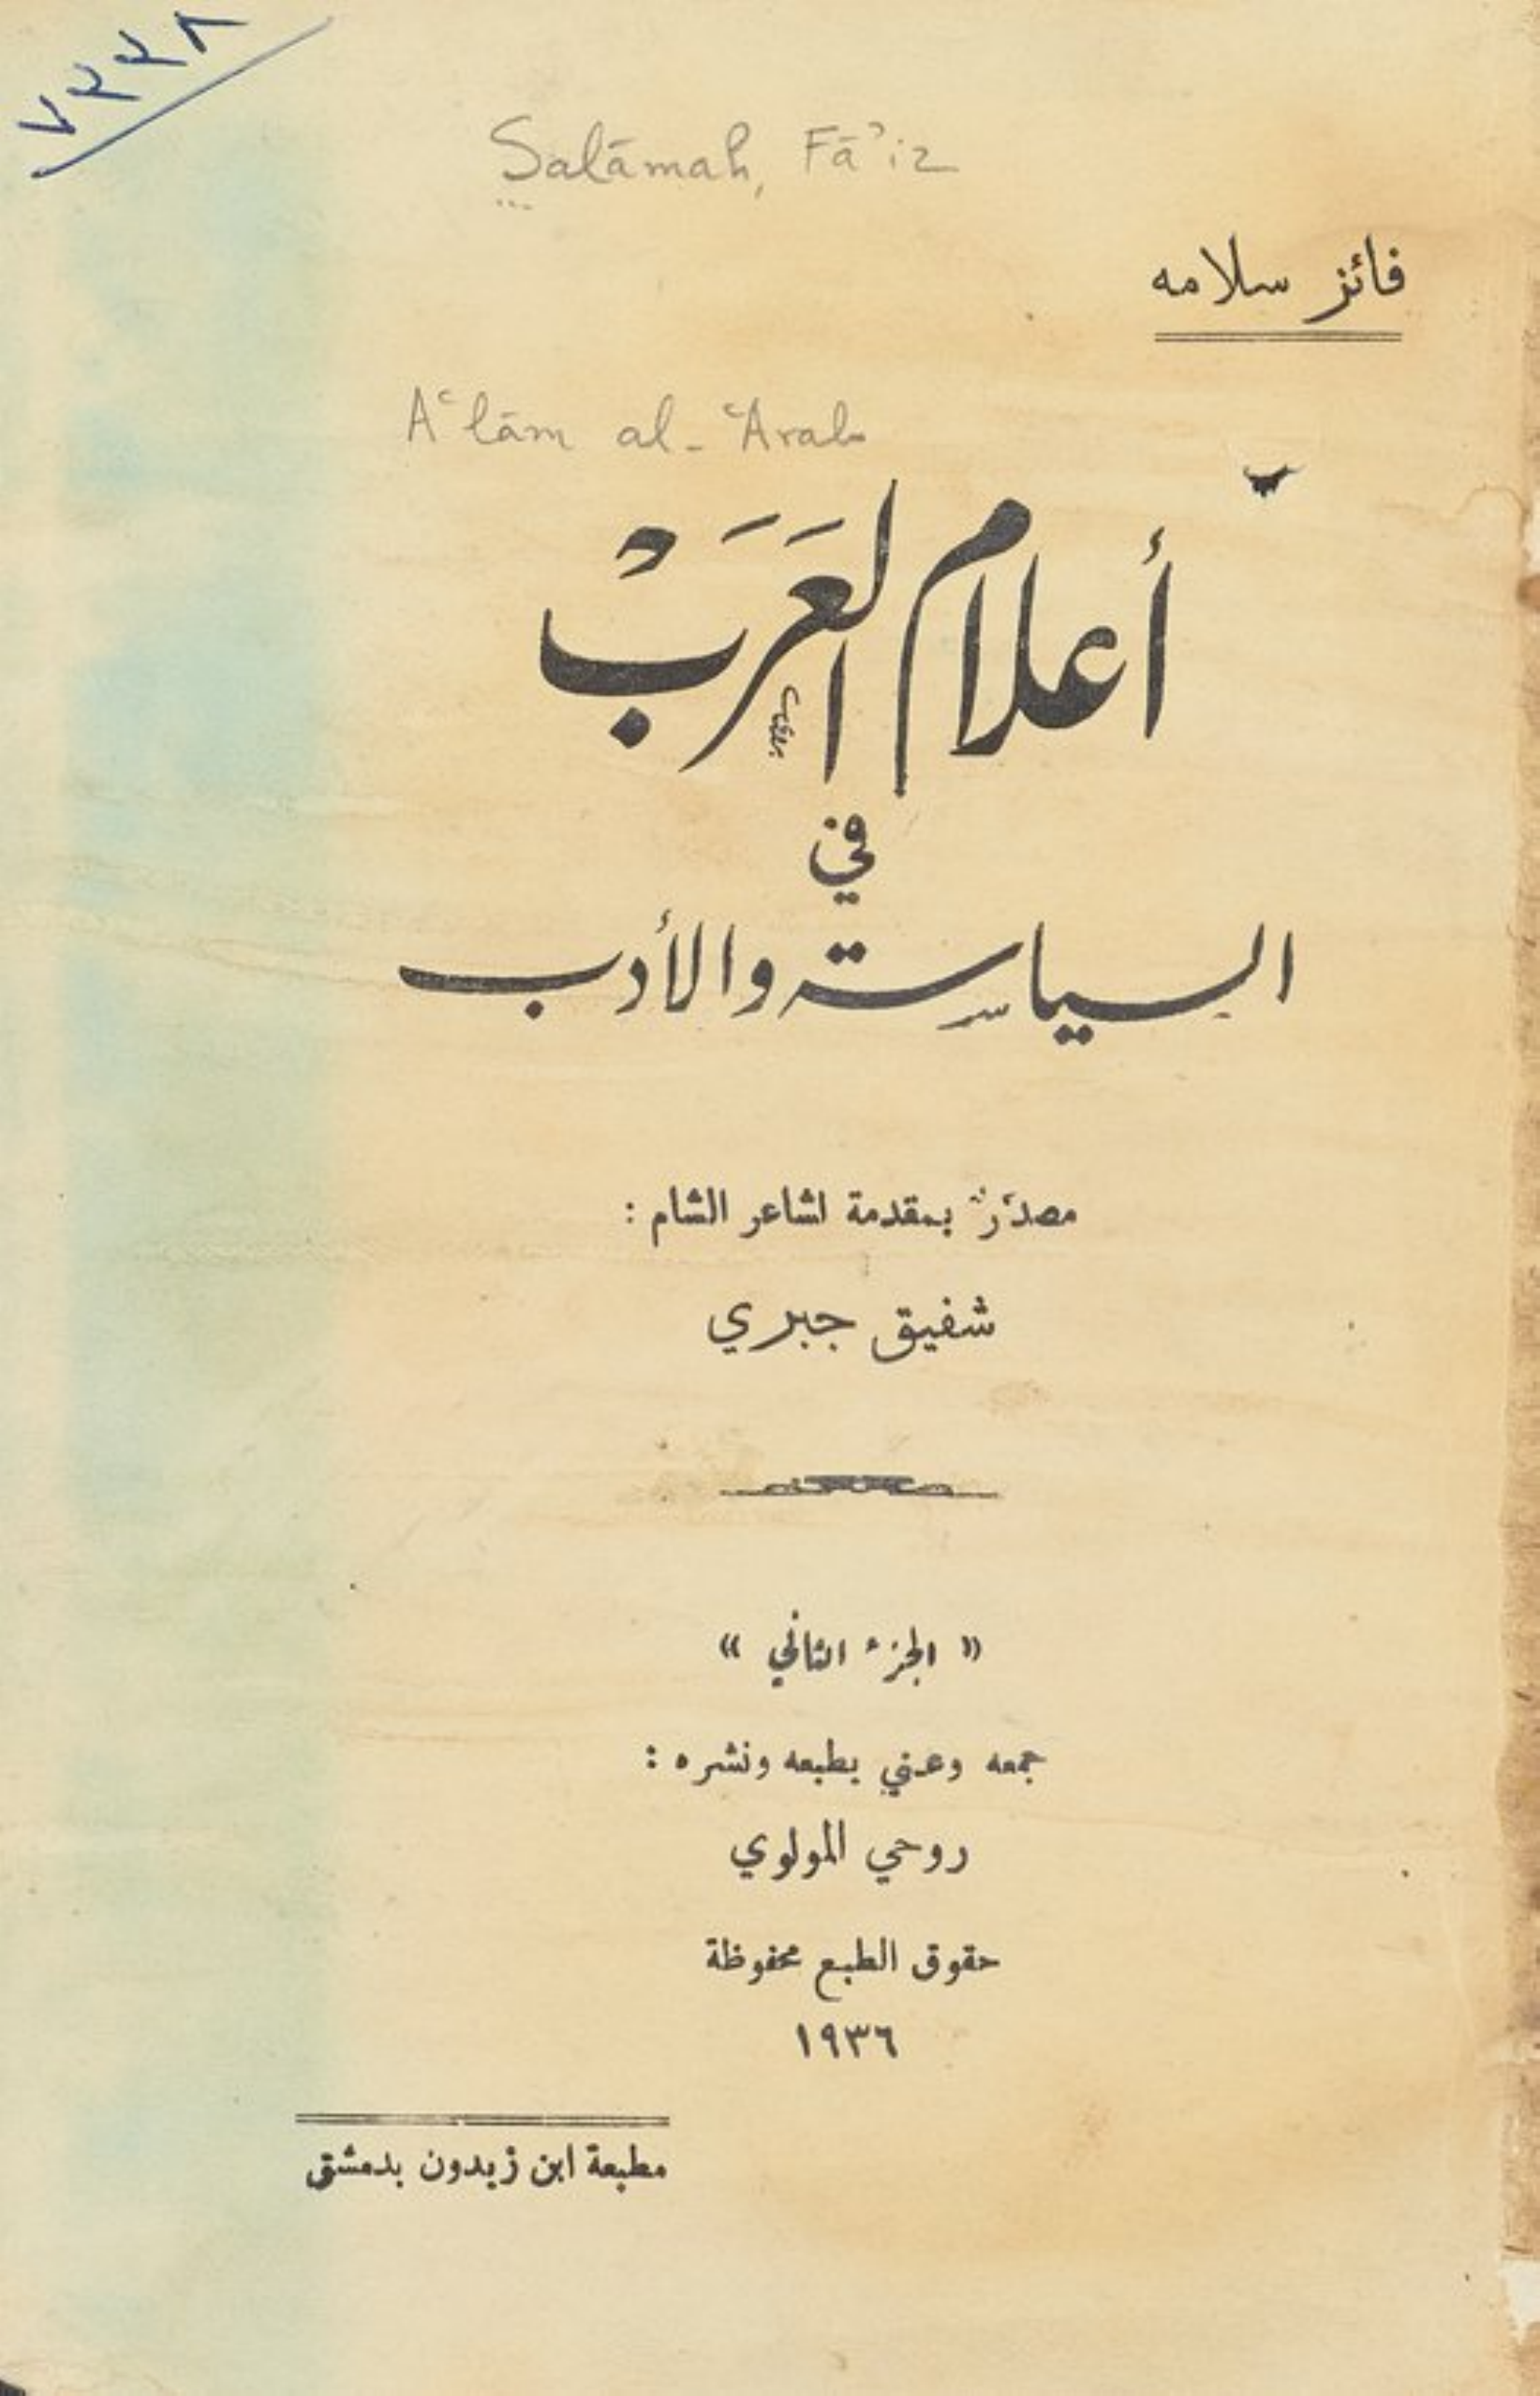 ٧٢٢٨
Salāmah, Fā'iz
فائز سلامه
Aʿlām al-ʿArab
أعلام العَرَبْ
في
السياسة والأدب
مصدَّرٌ بمقدمة لشاعر الشام :
شفيق جبري
« الجزء الثاني »
جمعه وعني بطبعه ونشره :
روحي المولوي
حقوق الطبع محفوظة
١٩٣٦
مطبعة ابن زيدون بدمشق